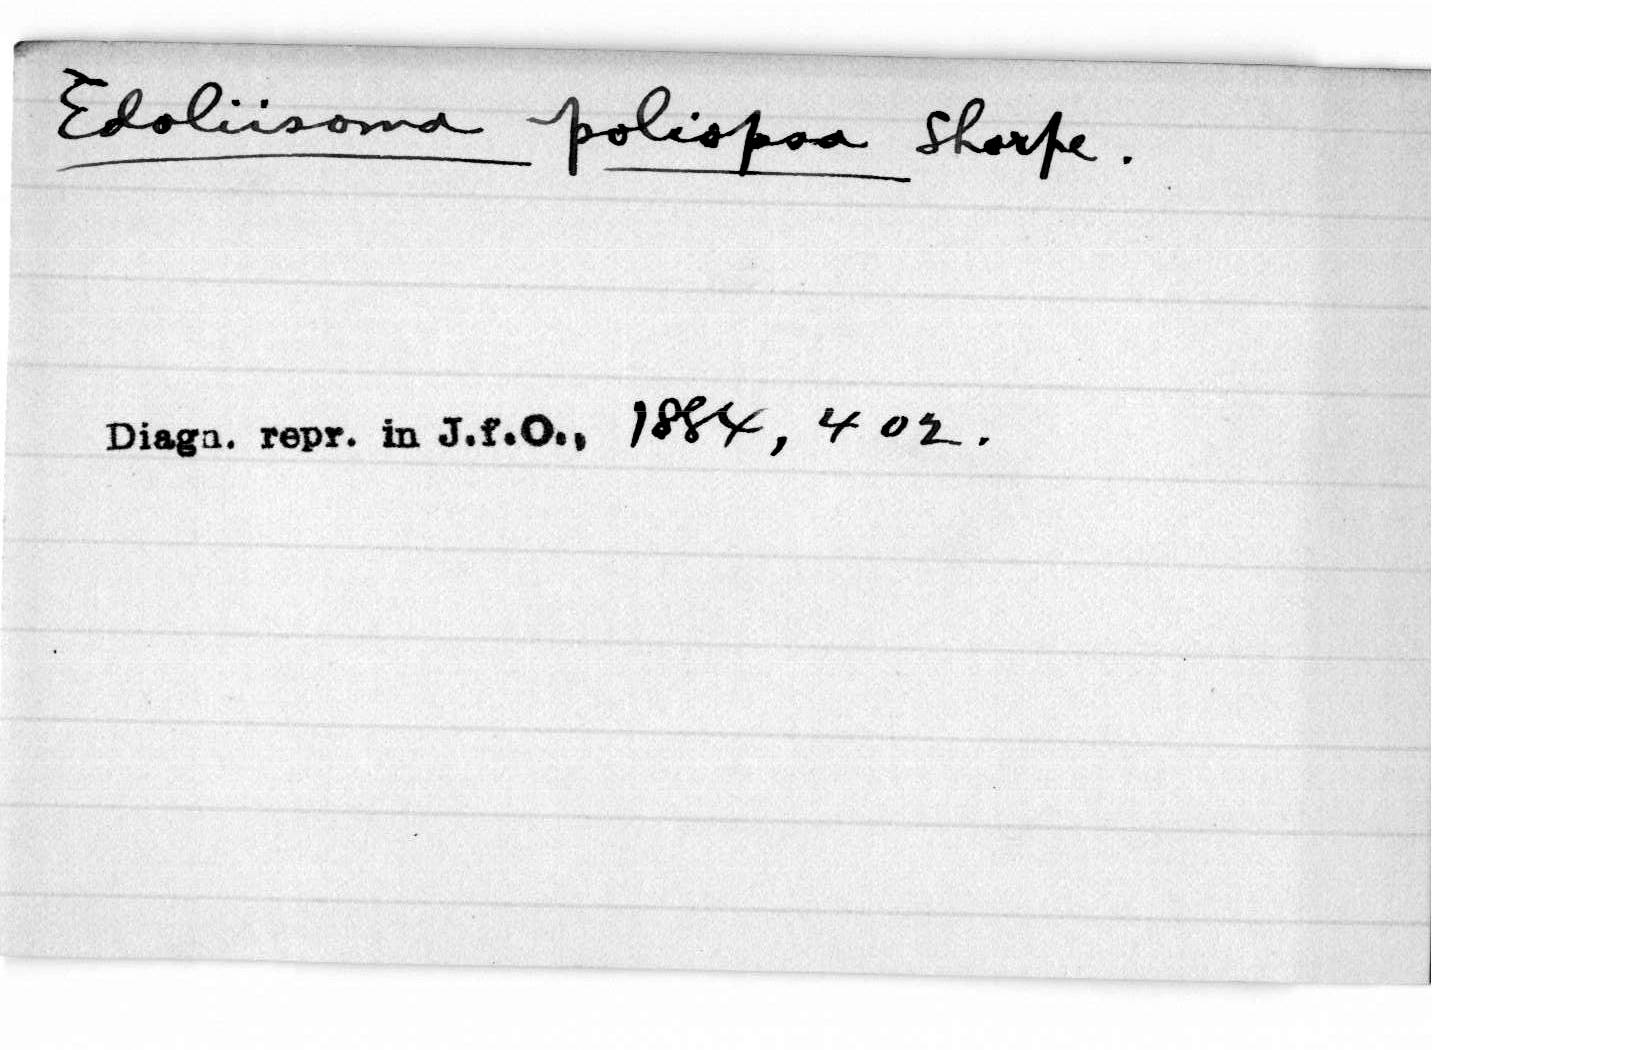 Edoliisoma poliopsa Sharpe.
Diagn. repr. in J.f.O., 1884, 402.